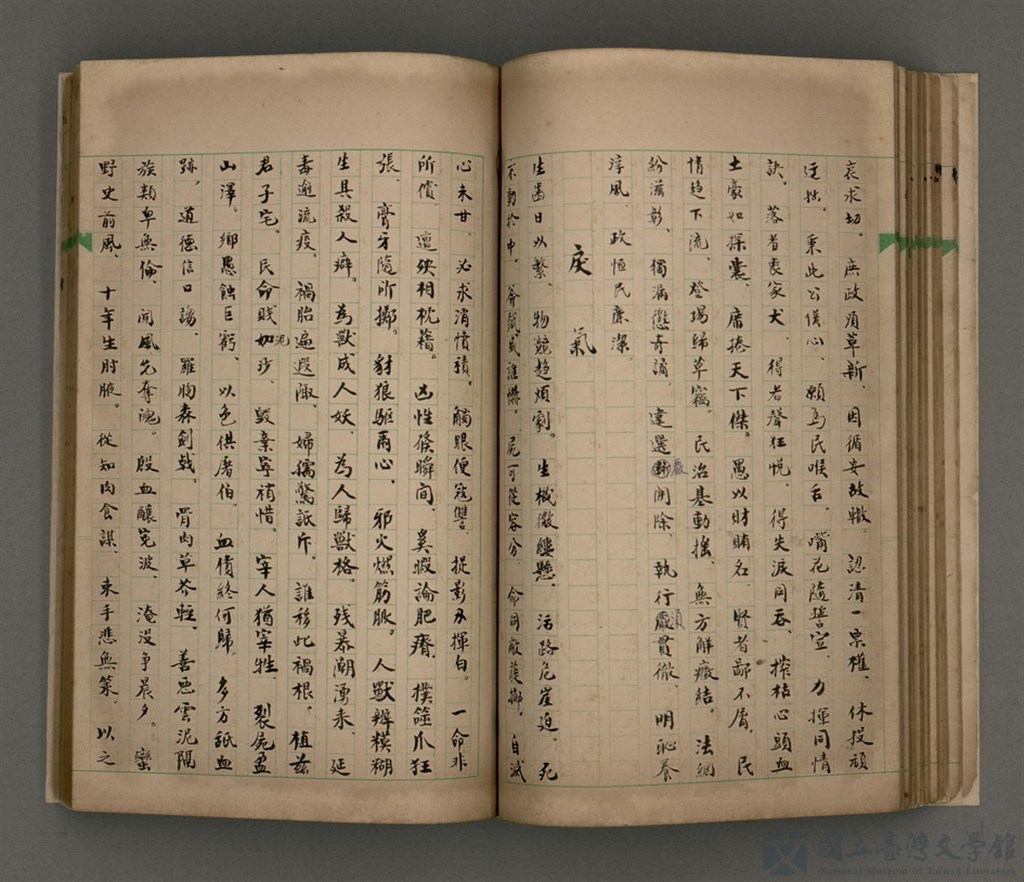 哀求切。庶政須革新、因循妄故轍。認清一票權、休投頑
迂拙。秉此公僕心、願為民喉舌。嘴花隨誓宣、力揮同情
訣。落者喪家犬、得者聲狂悅。得失淚同吞、搾枯心頭血
土豪如探囊、席捲天下傑。愚以財賄名、賢者鄙不屑。民
情趨下流、登場歸草竊。民治基動搖、無方解癥結。法網
紛滋彰、獨漏懲奇譎。違選嚴開除、執行須貫徹、明恥養
淳風。政恒民廉潔。
戾氣
生齒日以繁、物競趨煩劇。生機微縷懸、活路危崖迫。死
不動於中。 尸可從容分、命同敝蓰擲。自滅
心未甘、必求消憤積。觸眼便寇讐、捉影刃揮白。一命非
所償、遭殃相枕藉。凶性倏瞬間、奚暇論肥瘠。撲筵爪狂
張、膏牙隨所擲。豺狼驅兩心。邪火燃筋脈。人獸辨模糊
生具殺人癖。為獸成人妖、為人歸獸格。残暴潮湧来、延
毒邀流疫。禍胎遍遐陬、婦孺驚詬斥。誰移此禍根。植茲
君子宅。民命賤泥沙、毀棄寧稍惜。宰人猶宰牲、裂屍盈
山澤。鄉愚蝕巨虧、以色供屠伯。血債終何歸。多方舐血
跡。道德信口謅、羅胸森劍戟。骨肉草芥輕、善惡雲泥隔
族類卑無倫、聞風先奪魄。殷血釀冤波、淹沒爭晨夕。蠻
野史前風、十年生肘腋。從知肉食謀、束手悲無策。以之
國立臺灣文學館
National Museum of Taiwan Literature